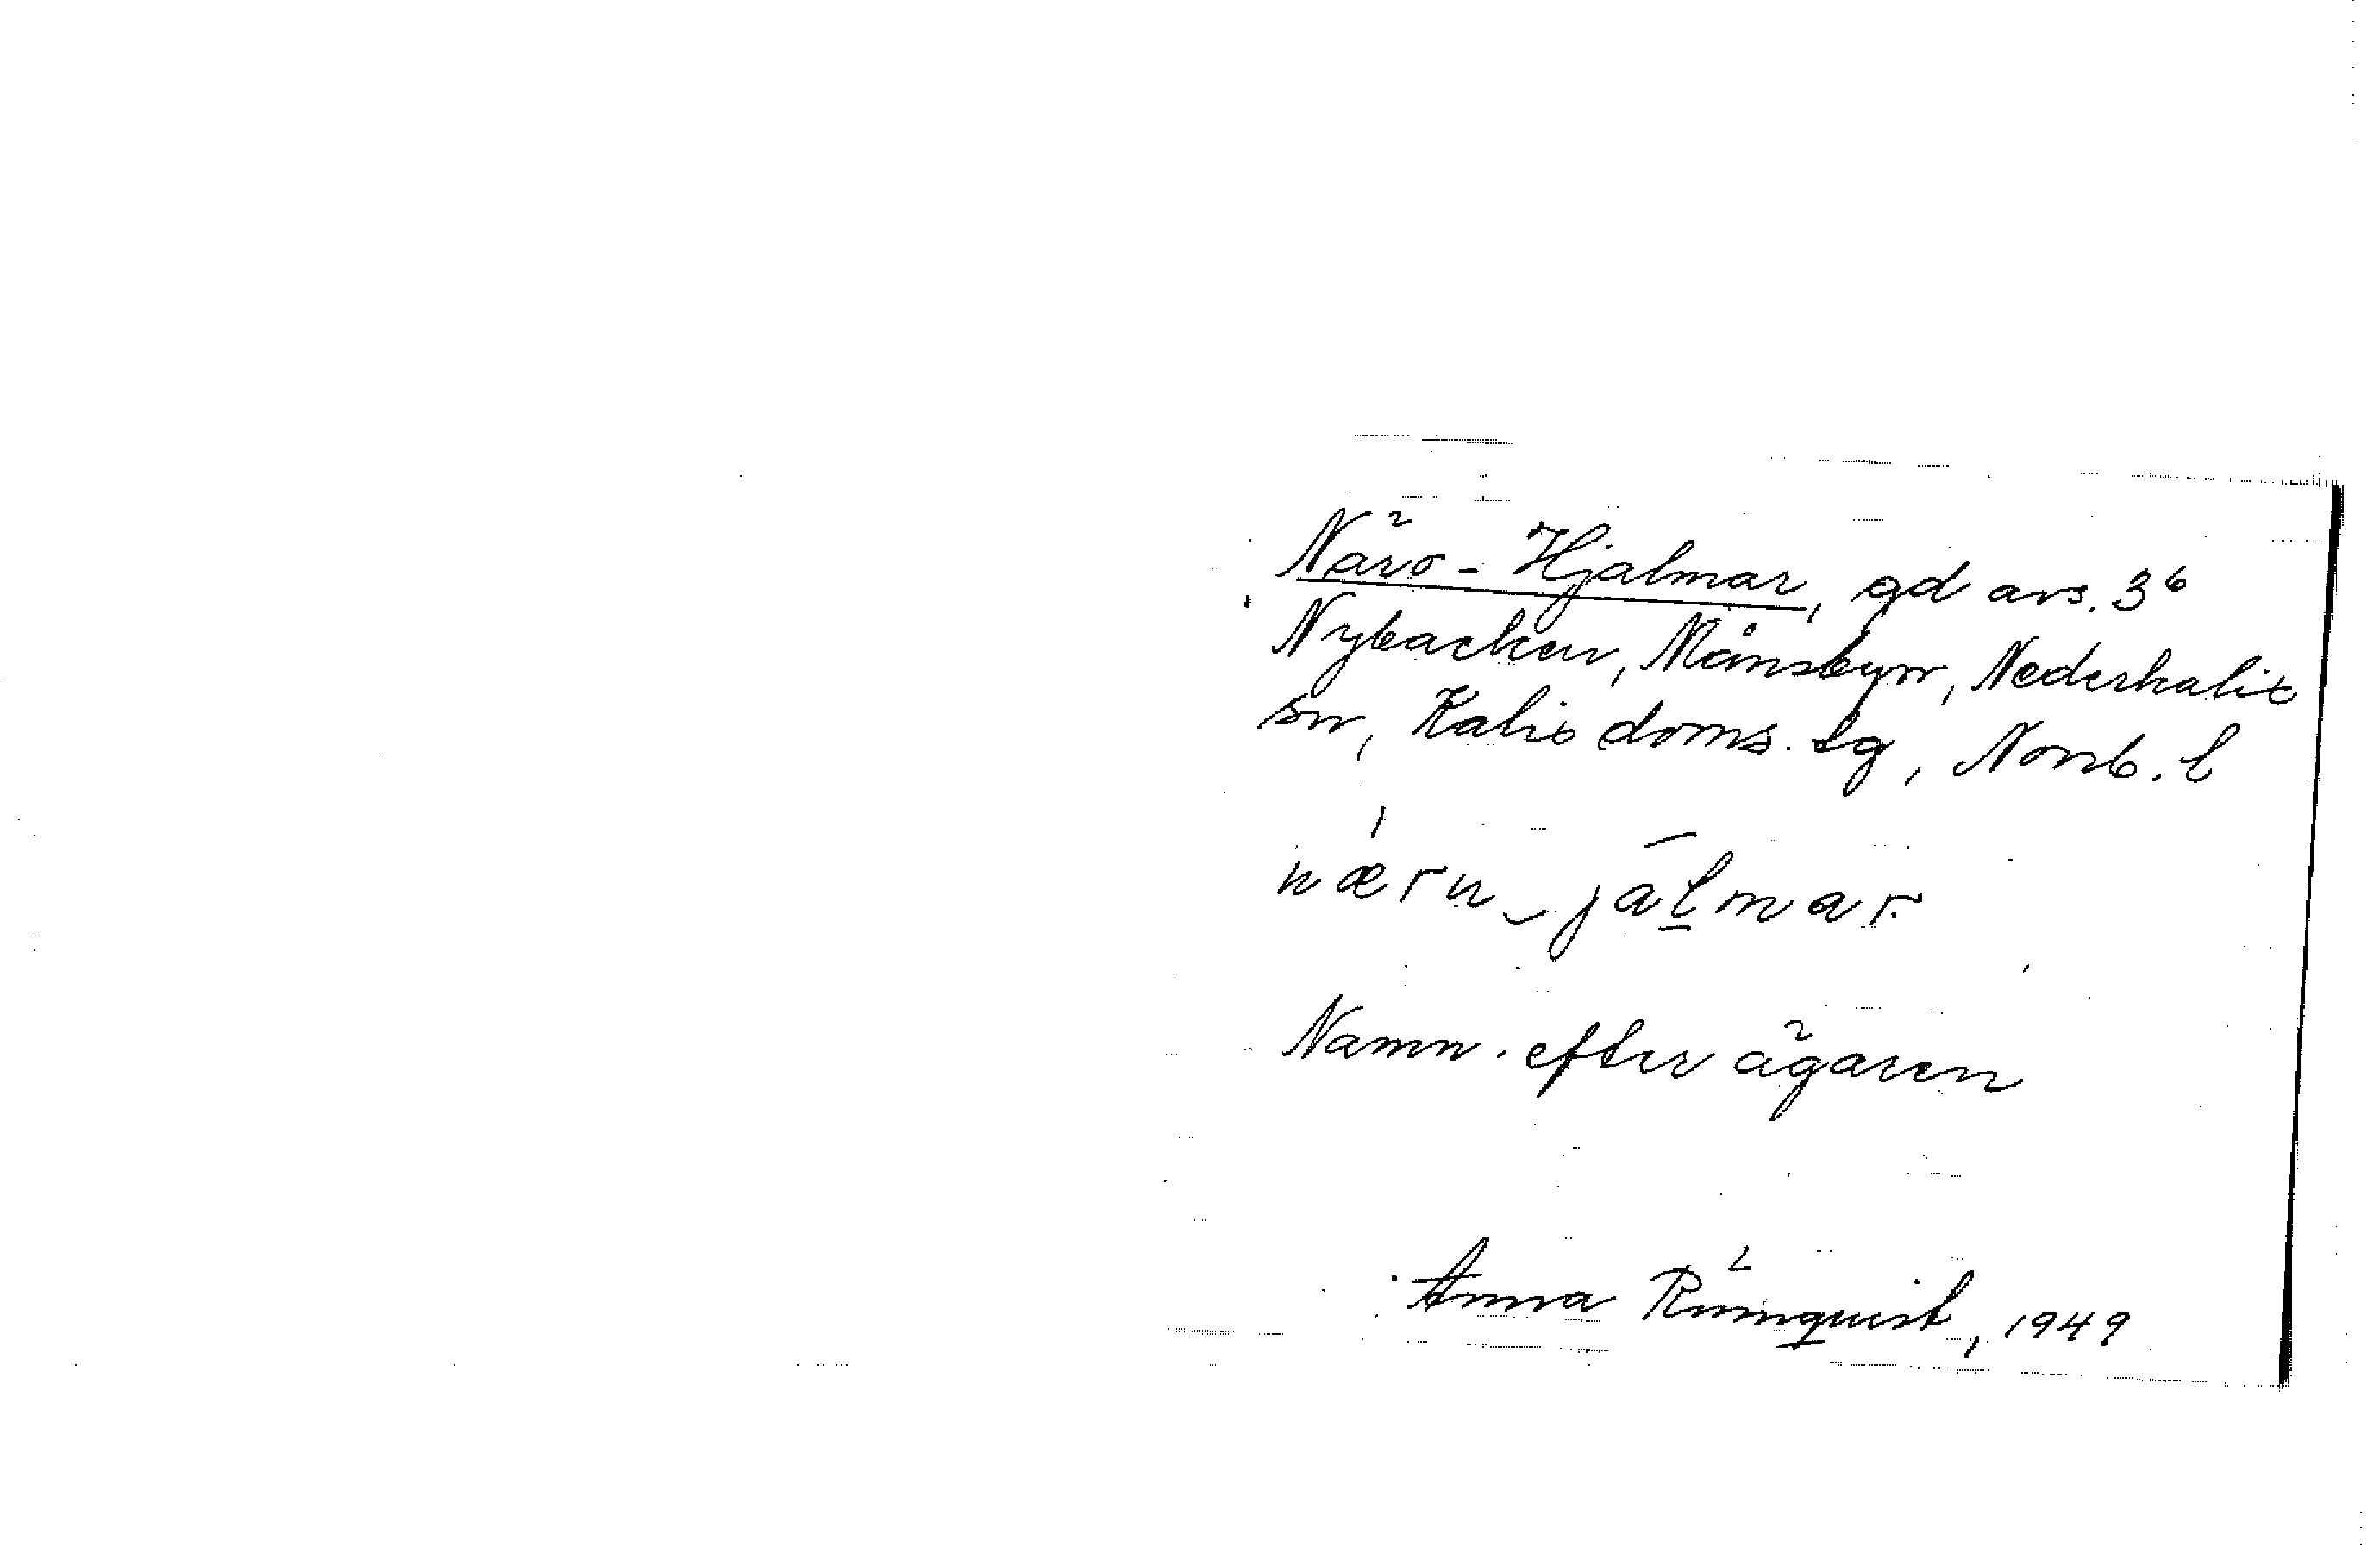 Närö-Hjalmar, gd avs. 3⁶
Nybacken, Månsbyn, Nederkalix
sn, Kalix doms. sg, Norrb. l
næru-jálmar
Namn. efter ägaren
Anna Rönnquist, 1949